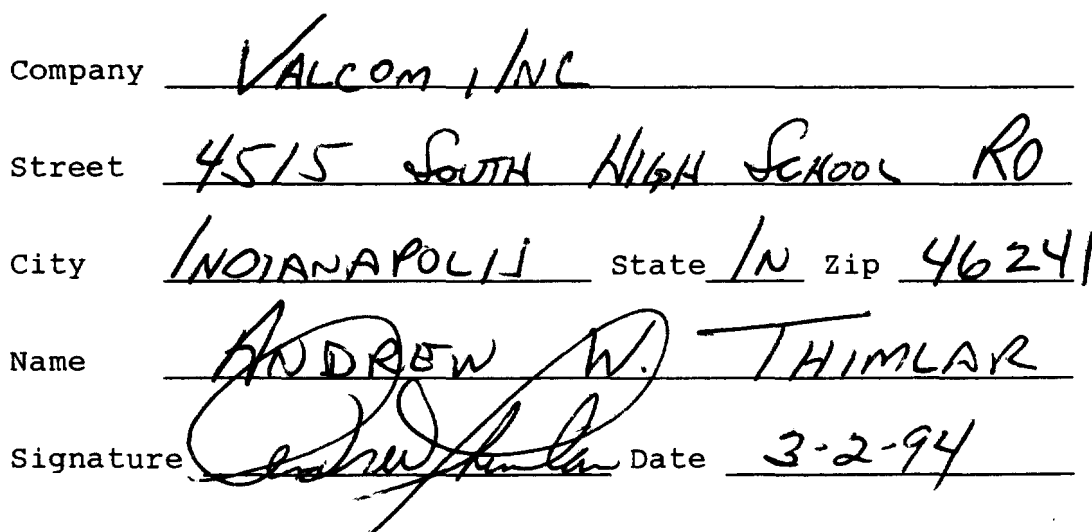 Company VALCOM, INC
Street 4515 SOUTH HIGH SCHOOL RD
City INDIANAPOLIS State IN Zip 46241
Name ANDREW W. THIMLAR
Signature Andrew Thimlar Date 3-2-94